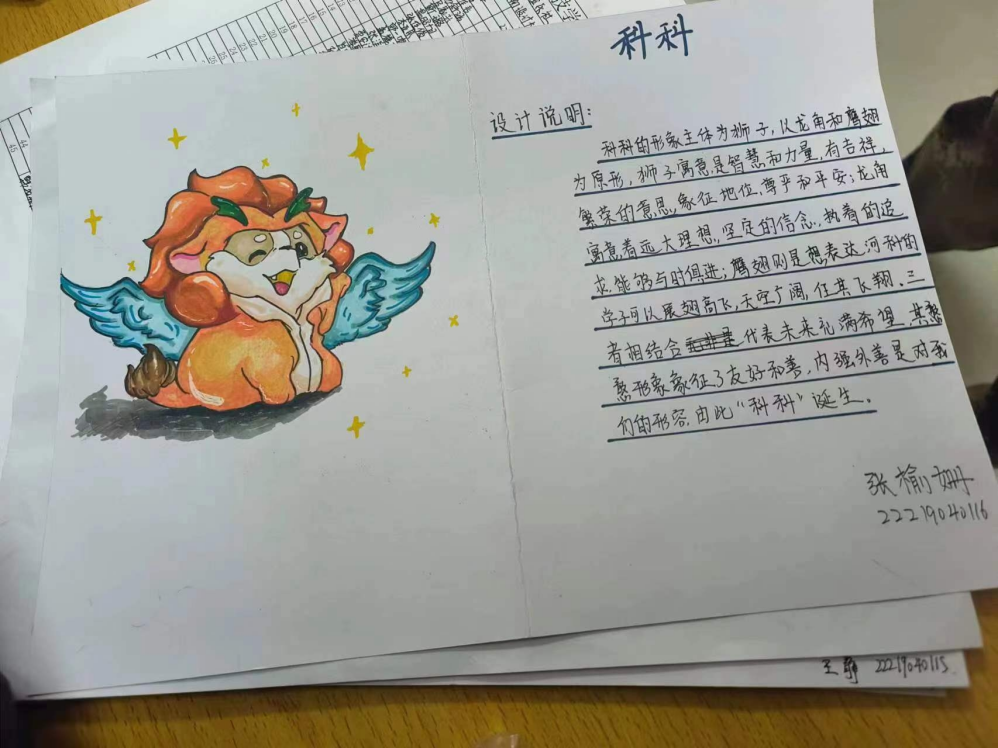 科科
设计说明:
科科的形象主体为狮子,以龙角和鹰翅
为原形,狮子寓意是智慧和力量,有吉祥,
繁荣的意思,象征地位,尊乎和平安;龙角
寓意着远大理想,坚定的信念,执着的追
求能够与时俱进;鹰翅则是想表达河科的
学子可以展翅高飞,天空广阔,任其飞翔.三
者相结合代表未来充满希望.其整
憨形象象征了友好和善,内强外善是对我
们的形容,由此“科科”诞生.
张榆姗
22219040116
王静 22219040115